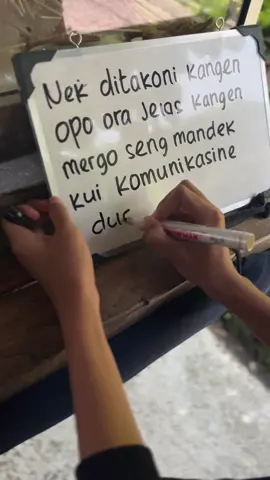 Nek ditakoni kangen
opo ora Jelas kangen
mergo seng mandek
kui komunikasine
dur